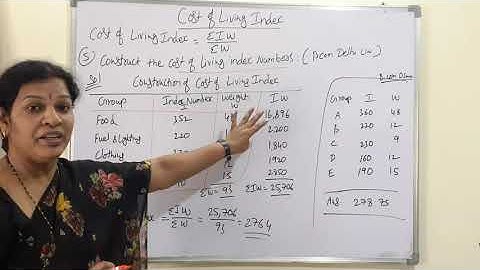 Cost of Living Index
Cost of Living Index = ΣIW
ΣW
⑤ Construct the cost of living index Numbers: (
Construction of Cost of Living Index
Group Index Number I Weight W IW
Food 352 16,896
Fuel & Lighting 220 2,200
Clothing 1,840
1920
15 2850
ΣW = 93 ΣIW = 25,706
= ΣIW = 25,706 = 276.4
ΣW 93
Group I W
A 360 48
B 270 12
C 230 9
D 160 12
E 190 15
Ans 278.75